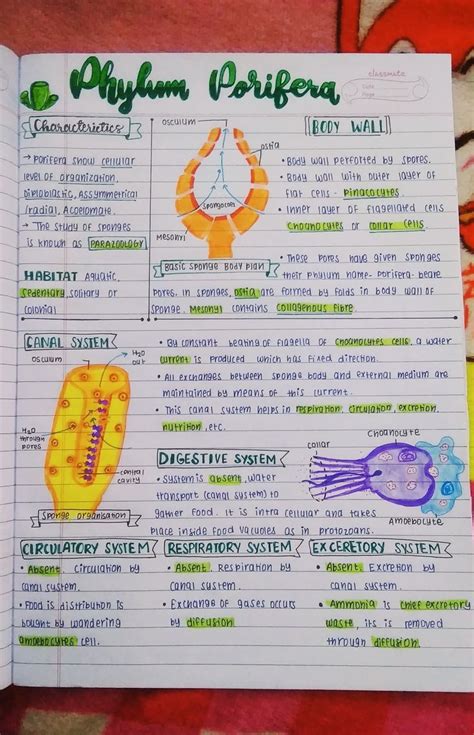 Phylum Porifera
classmate
Date
Page
Characteristics
→ Porifera show cellular
level of organization,
Diploblastic, Assymmetrical
/radial, Acoelomate.
→ The study of sponges
is known as PARAZOOLOGY
HABITAT Aquatic,
sedentary, solitary or
colonial
osculum
ostia
spongocoel
Mesohyl
Basic Sponge Body Plan
BODY WALL
• Body wall perforted by spores.
• Body wall with outer layer of
flat cells - pinacocytes.
• Inner layer of flagellated cells
choanocytes or collar cells.
• These pores have given sponges
their phylum name- porifera- beare
pores. In sponges, ostia are formed by folds in body wall of
sponge. Mesohyl contains collagenous fibre
CANAL SYSTEM
osculum
H2O
out
H2O
through
pores
central
cavity
Sponge organisation
• By constant beating of flagella of choanocytes cells, a water
current is produced which has fixed direction.
• All exchanges between sponge body and external medium are
maintained by means of this current.
• This canal system helps in respiration, circulation, excretion,
nutrition, etc.
DIGESTIVE SYSTEM
• System is absent, water
transport (canal system) to
gather food. It is intra cellular and takes
place inside food vacuoles as in protozoans.
Choanocyte
collar
Amoebocyte
CIRCULATORY SYSTEM
• Absent, circulation by
canal system.
• Food is distribution is
bought by wandering
amoebocytes cell.
RESPIRATORY SYSTEM
• Absent. Respiration by
canal system.
• Exchange of gases occurs
by diffusion
EXCERETORY SYSTEM
• Absent. Excretion by
canal system.
• Ammonia is chief excretory
waste, its is removed
through diffusion.